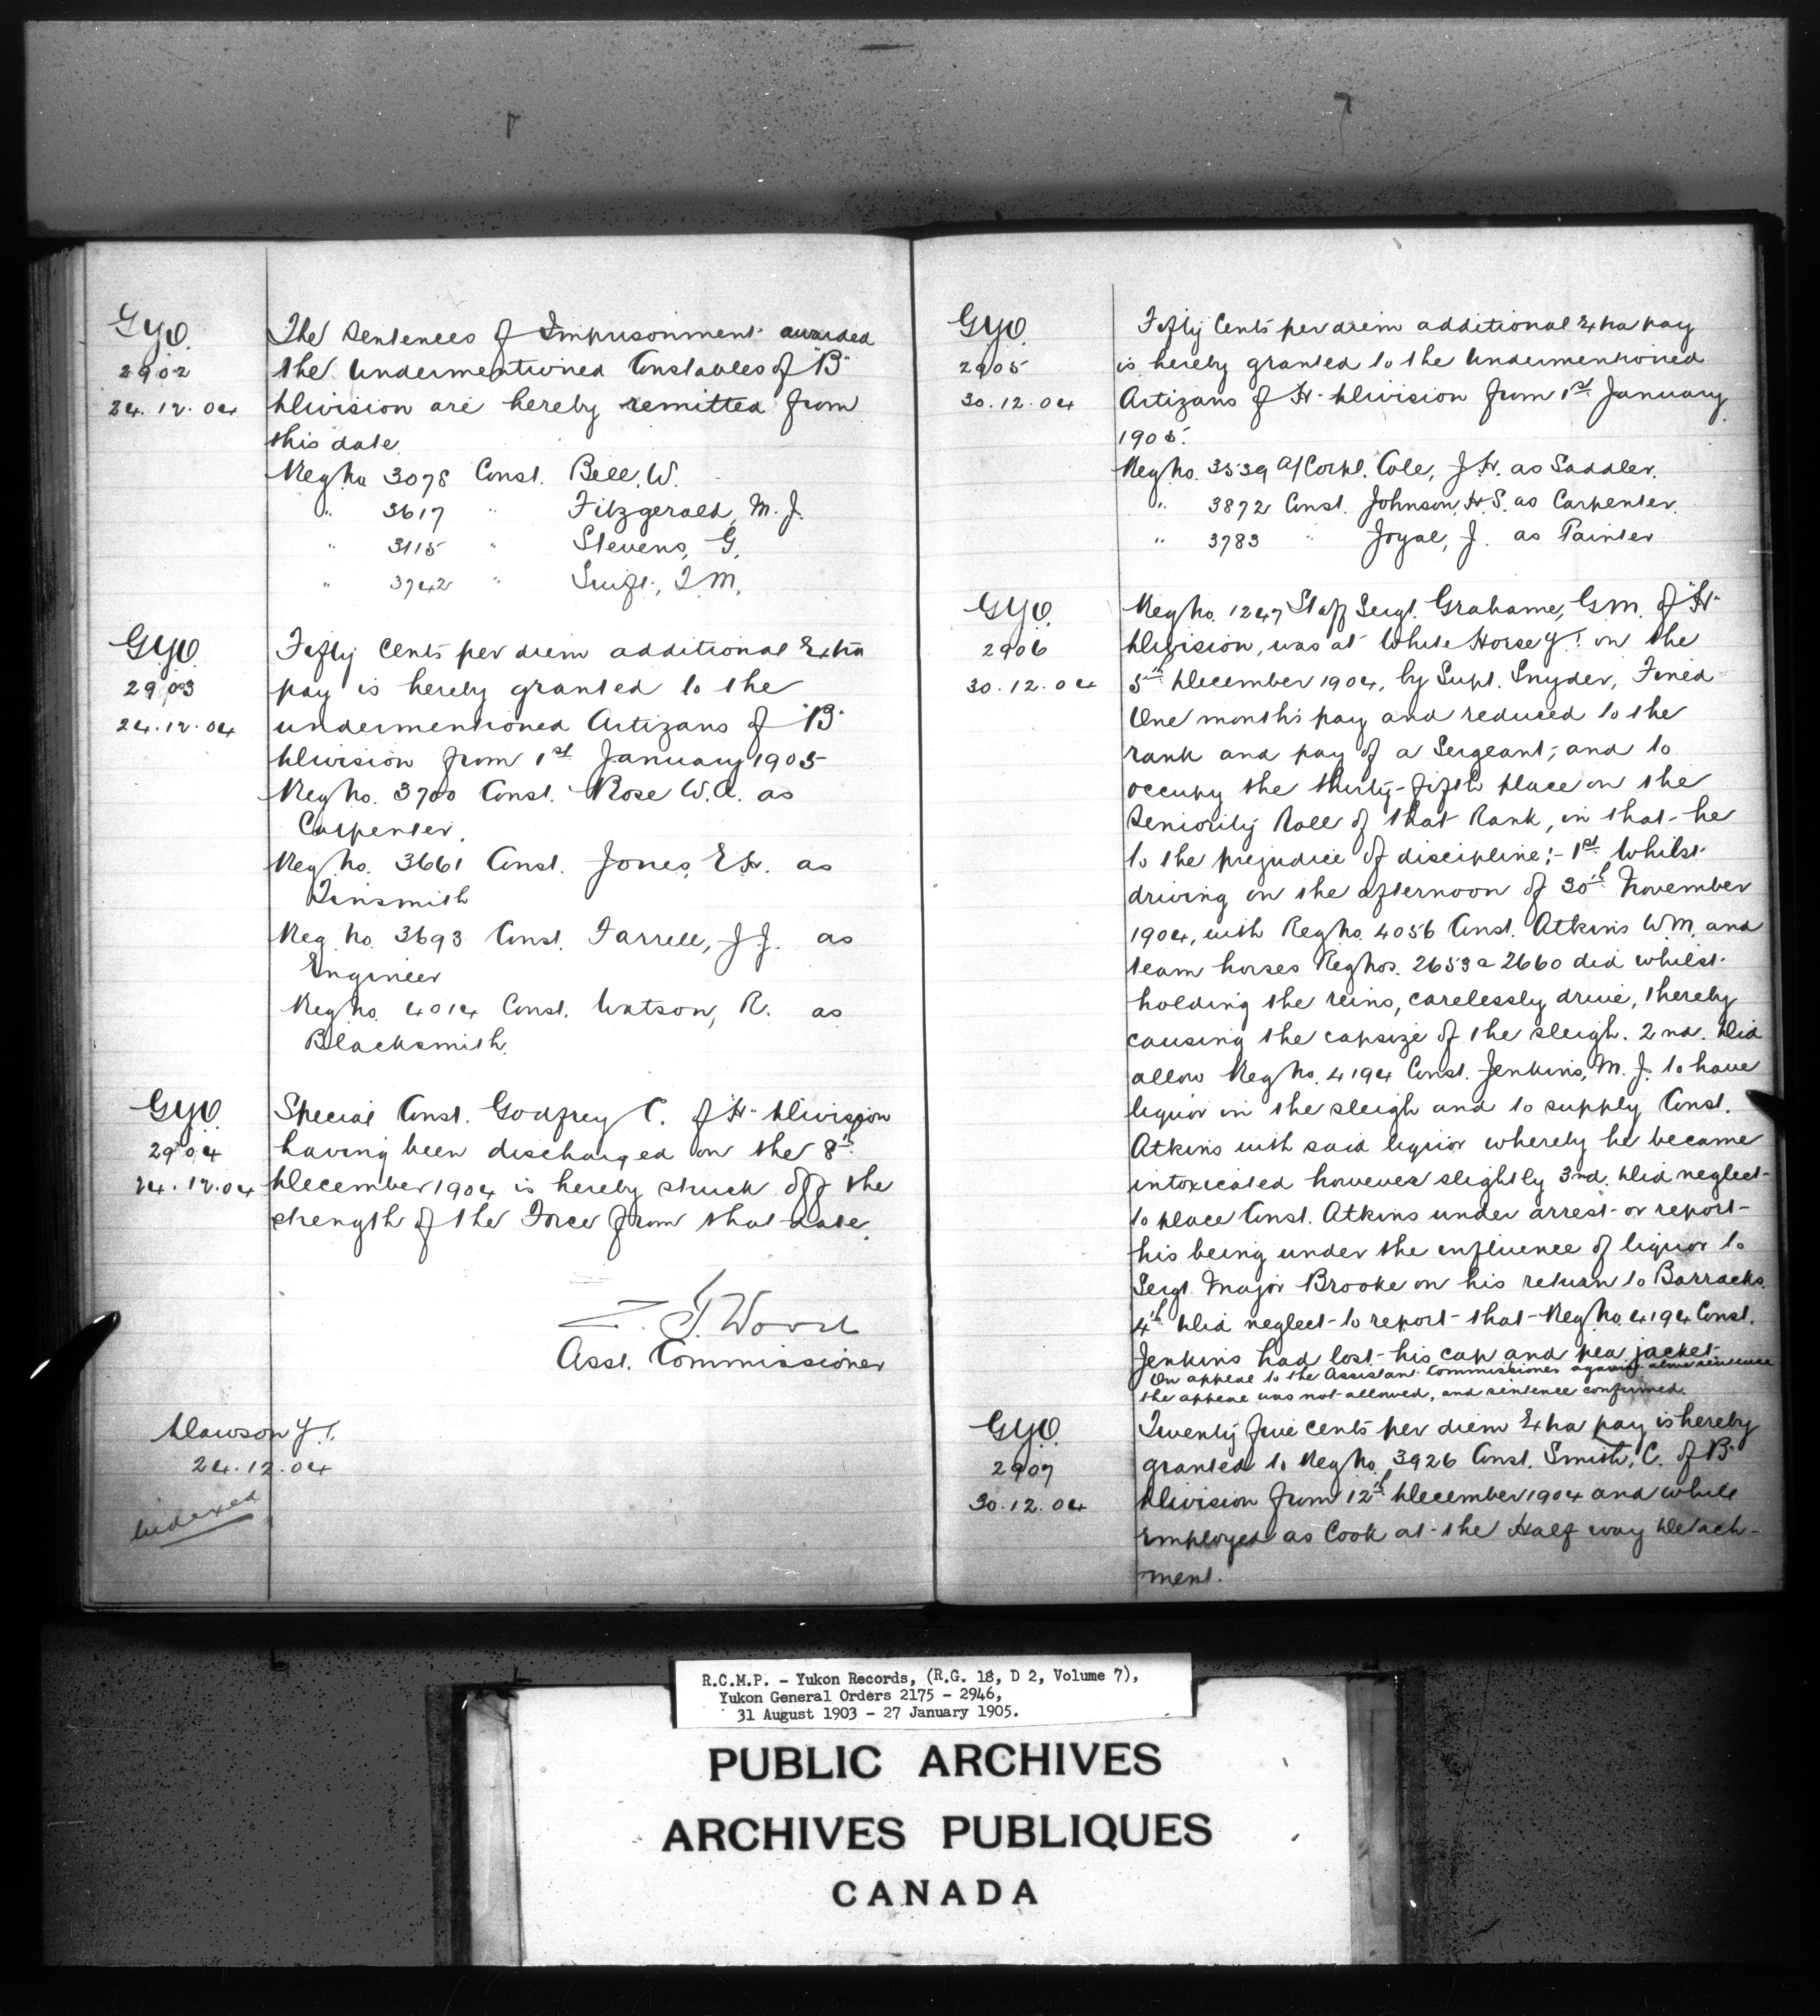 GYO.
2902
24.12.04
The Sentences of Imprisonment awarded
the undermentioned Constables of "B"
Division are hereby remitted from
this date.
Reg No 3078 Const. Bell, W.
" 3617 " Fitzgerald, M. J.
" 3115 " Stevens, G.
" 3742 " Swift, T. M.
GYO.
2903
24.12.04
Fifty cents per diem additional Extra
pay is hereby granted to the
undermentioned Artizans of "B"
Division from 1st January 1905
Reg No. 3700 Const. Rose W.A. as
Carpenter.
Reg No. 3661 Const. Jones, E.H. as
Tinsmith
Reg No. 3693 Const. Farrell, J.J. as
Engineer
Reg No. 4014 Const. Watson, R. as
Blacksmith.
GYO.
2904
24.12.04
Special Const. Godfrey C. of "H" Division
having been discharged on the 8th
December 1904 is hereby struck off the
strength of the Force from that date.
Z. T. Wood
Asst. Commissioner
Dawson Y.T.
24.12.04
Indexed
GYO.
2905
30.12.04
Fifty cents per diem additional Extra pay
is hereby granted to the Undermentioned
Artizans of "H" Division from 1st January
1905.
Reg No. 3539 A/Corpl. Cole, J.H. as Saddler.
" 3872 Const. Johnson, H.S. as Carpenter.
" 3783 " Joyal, J. as Painter
GYO.
2906
30.12.04
Reg No. 1247 Staff Sergt. Grahame, G.M. of "H"
Division, was at White Horse Y.T. on the
5th December 1904, by Supt. Snyder, Fined
One months pay and reduced to the
rank and pay of a Sergeant, and to
occupy the thirty-fifth place on the
Seniority Roll of that Rank, in that he
to the prejudice of discipline:- 1st Whilst
driving on the afternoon of 30th November
1904, with Reg No. 4056 Const. Atkins W.M. and
team horses Reg Nos. 2653 & 2660 did whilst
holding the reins, carelessly drive, thereby
causing the capsize of the sleigh. 2nd. Did
allow Reg No. 4194 Const. Jenkins, M. J. to have
liquor in the sleigh and to supply Const.
Atkins with said liquor whereby he became
intoxicated however slightly 3rd. Did neglect
to place Const. Atkins under arrest or report
his being under the influence of liquor to
Sergt. Major Brooke on his return to Barracks.
4th Did neglect to report that Reg No. 4194 Const.
Jenkins had lost his cap and pea jacket.
On appeal to the Assistant Commissioner against above sentence
the appeal was not allowed, and sentence confirmed.
GYO.
2907
30.12.04
Twenty five cents per diem Extra pay is hereby
granted to Reg No. 3926 Const. Smith, C. of "B"
Division from 12th December 1904 and while
employed as Cook at the Half way Detach-
ment.
R.C.M.P. - Yukon Records, (R.G. 18, D 2, Volume 7),
Yukon General Orders 2175 - 2946,
31 August 1903 - 27 January 1905.
PUBLIC ARCHIVES
ARCHIVES PUBLIQUES
CANADA